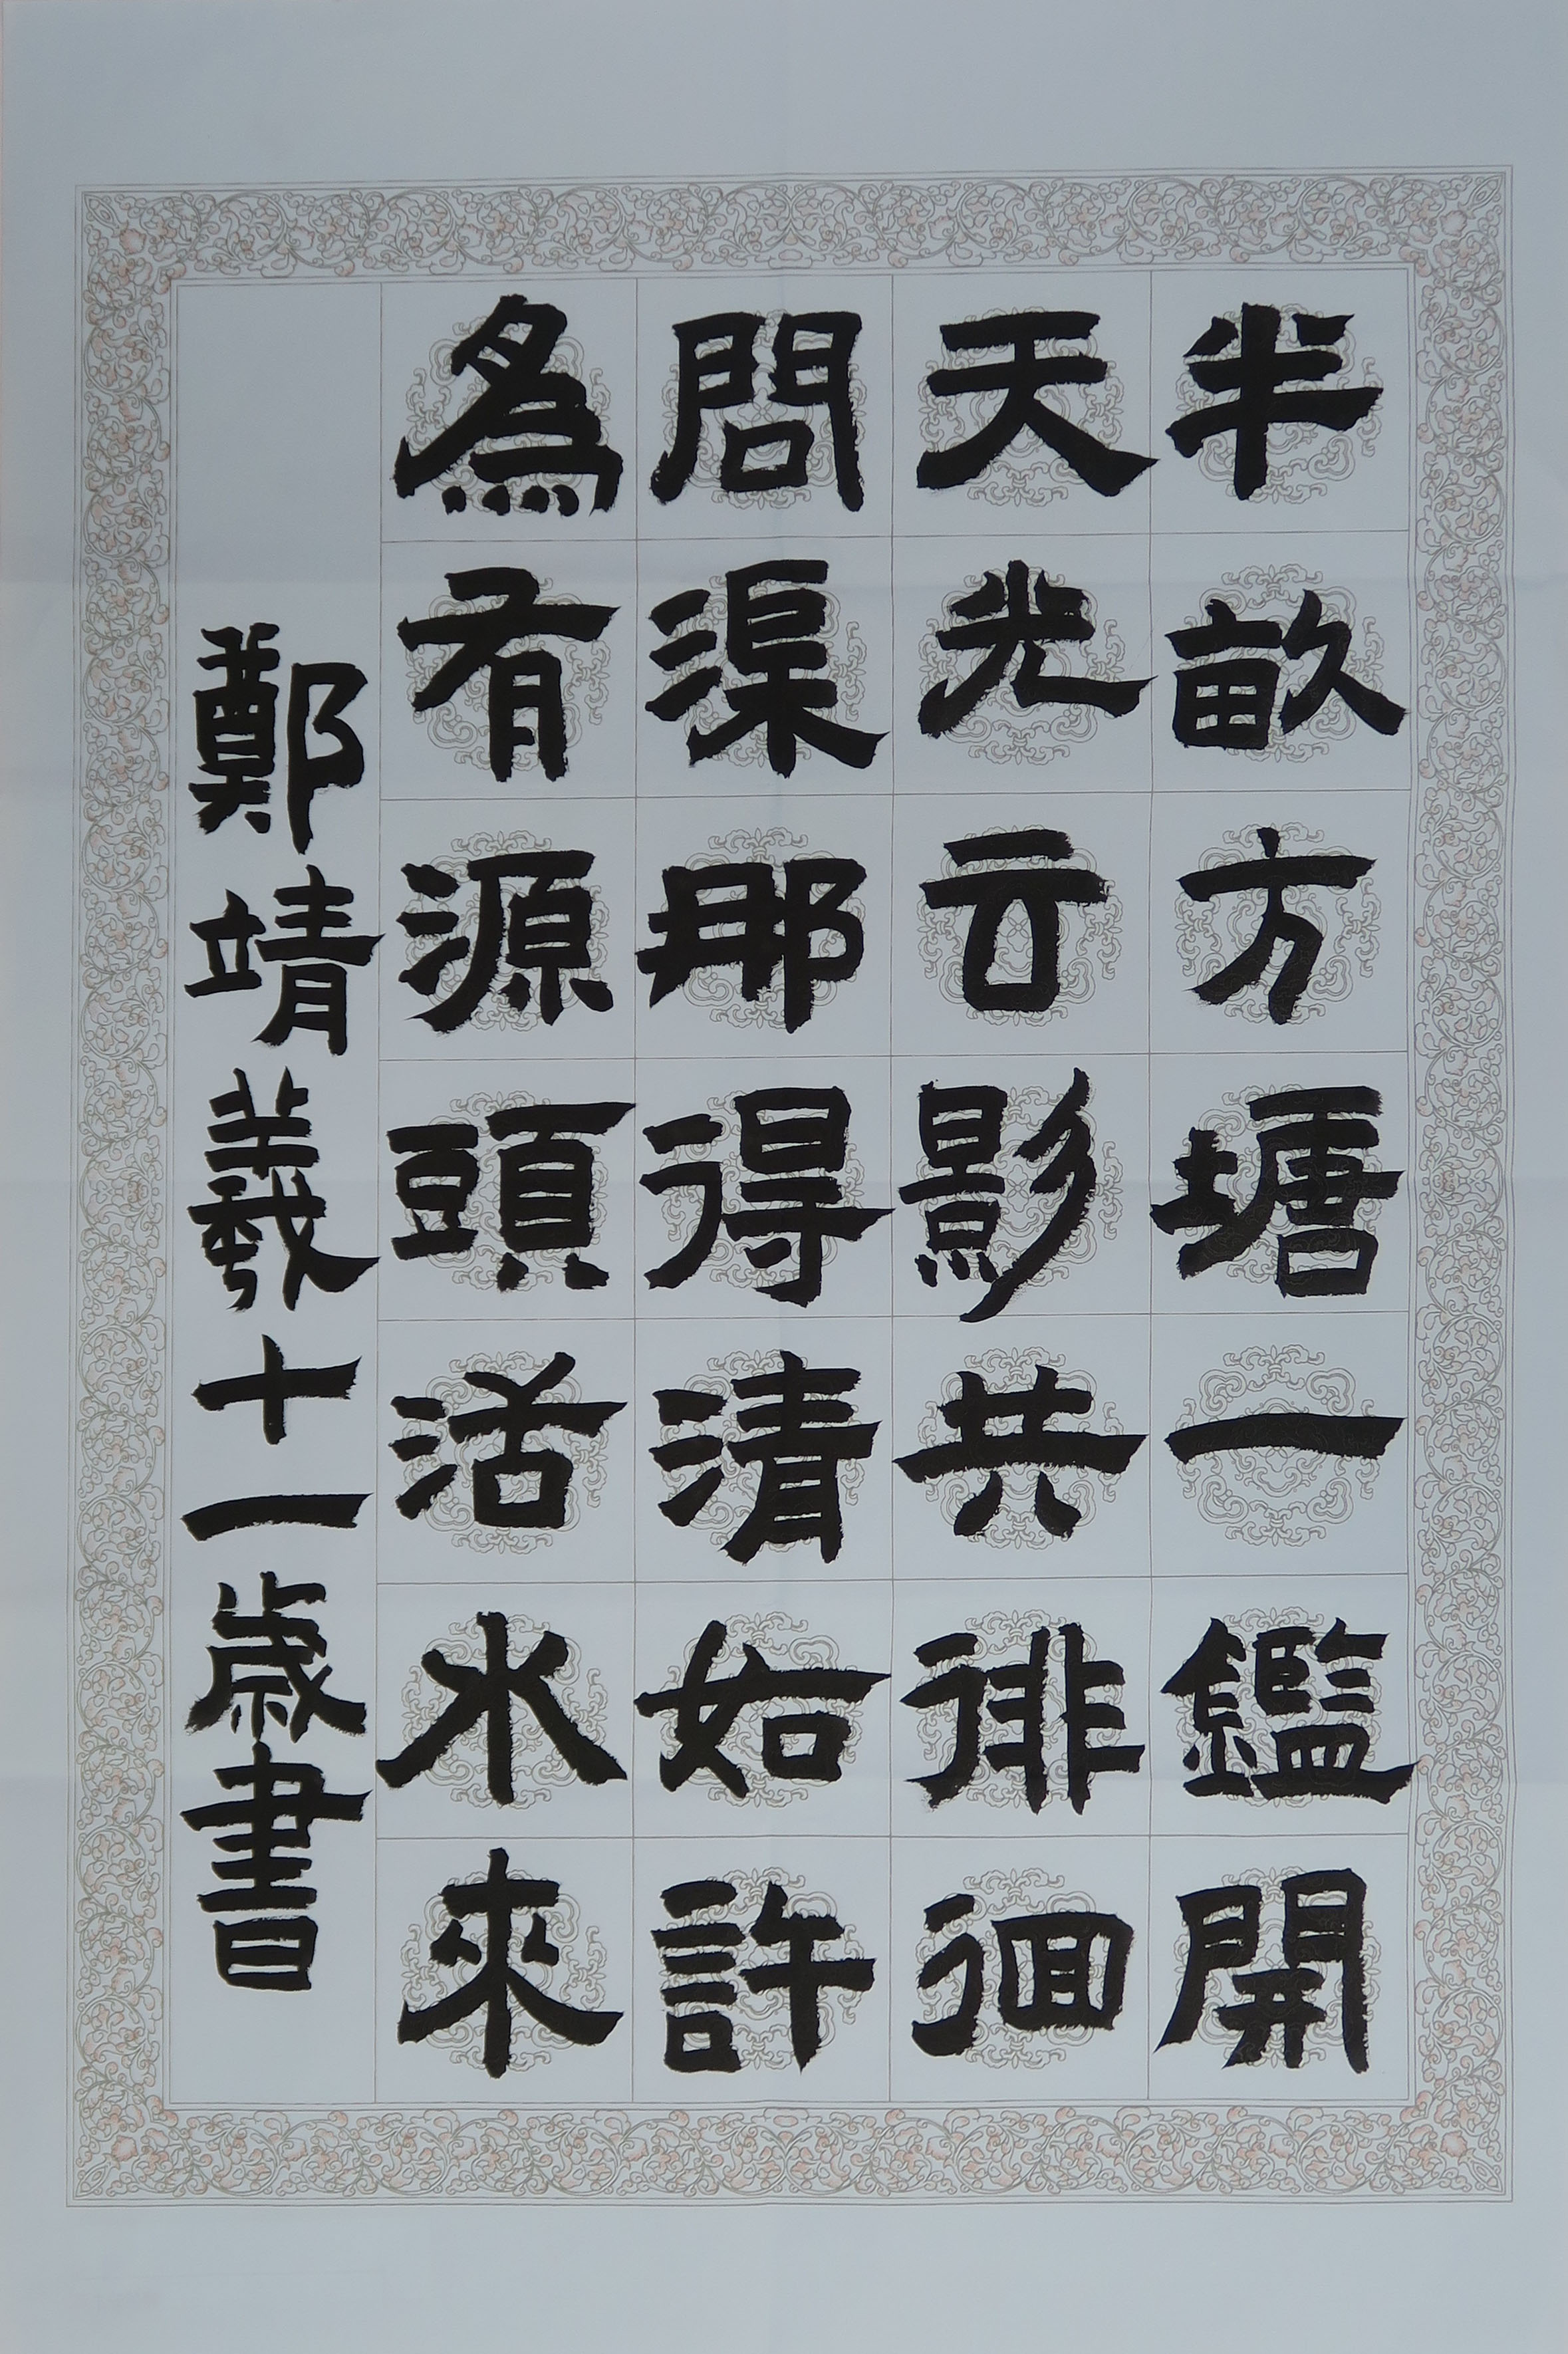 半畝方塘一鑑開
天光云影共徘徊
問渠那得清如許
為有源頭活水來
鄭靖羲十一歲書